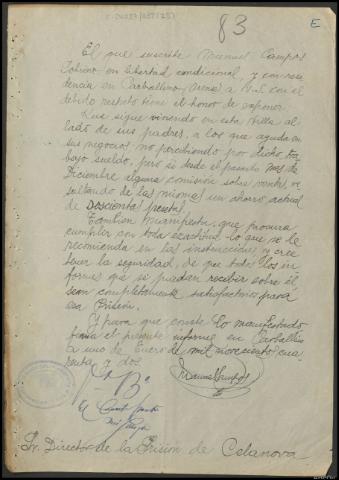 83
E
El que suscribe Manuel Campos
Sobrino en libertad condicional, y con resi
dencia en Carballino, Orense a V.S. con el
debido respeto tiene el honor de exponer
Que sigue viviendo en esta Villa al
lado de sus padres, a los que ayuda en
sus negocios no percibiendo por dicho tra
bajo sueldo, pero si desde el pasado mes de
Diciembre alguna comisión sobre ventas, re
sultando de las mismas un ahorro actual
de Doscientas pesetas,
Tambien manifiesta, que procura
cumplir con toda exactitud lo que se le
recomienda en las instrucciones y cree
tener la seguridad, de que todos los in
formes que se puedan recibir sobre él,
sean completamente satisfactorios para
esa Prisión.
Y para que conste lo manifestado
firma el presente informe en Carballino
a uno de Enero de mil novecientos cua
renta y dos
Manuel Campos
Vº Bº
El
Sr. Director de la Prisión de Celanova